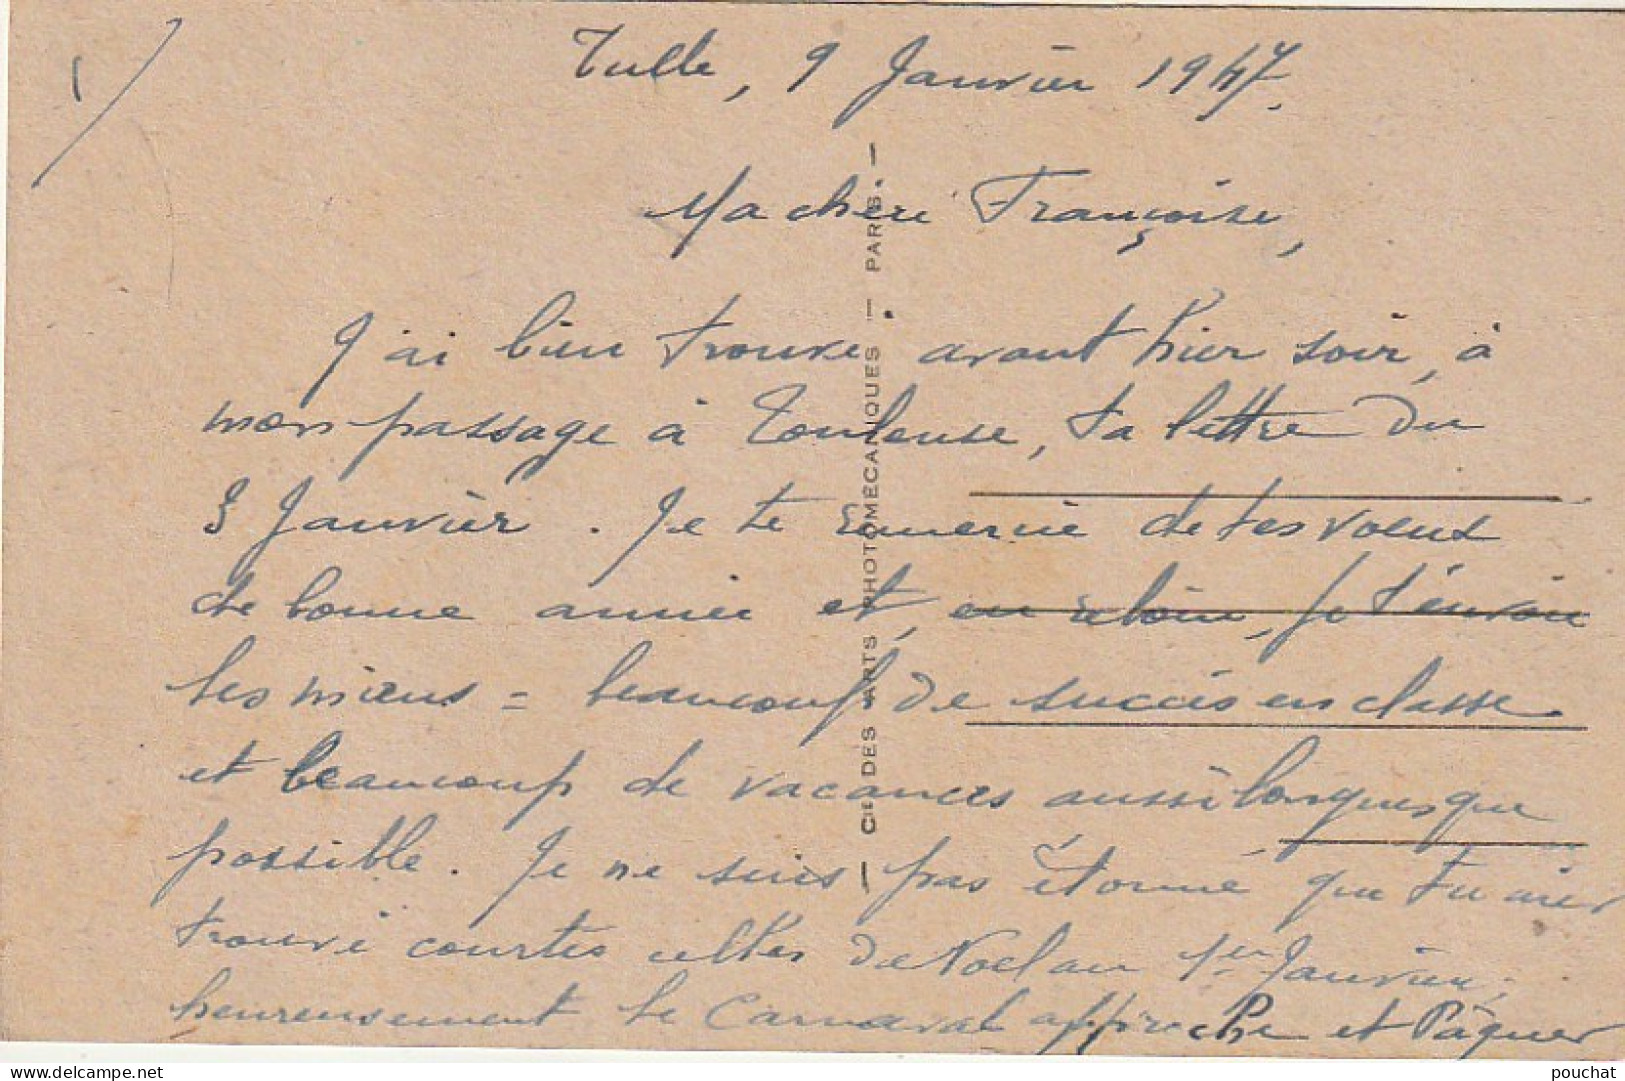 Tulle, 9 Janvier 1947.
Ma chère Françoise,
J'ai bien trouvé avant hier soir, à
mon passage à Toulouse, ta lettre du
3 Janvier. Je te remercie de tes voeux
de bonne année et, en retour, je t'envoie
les miens = beaucoup de succès en classe
et beaucoup de vacances aussi longues que
possible. Je ne suis pas étonné que tu aies
trouvé courtes celles de Noel au 1er Janvier;
heureusement le Carnaval approche et Pâques
CIE DES ARTS PHOTOMECANIQUES — PARIS. —
delcampe.net
pouchat